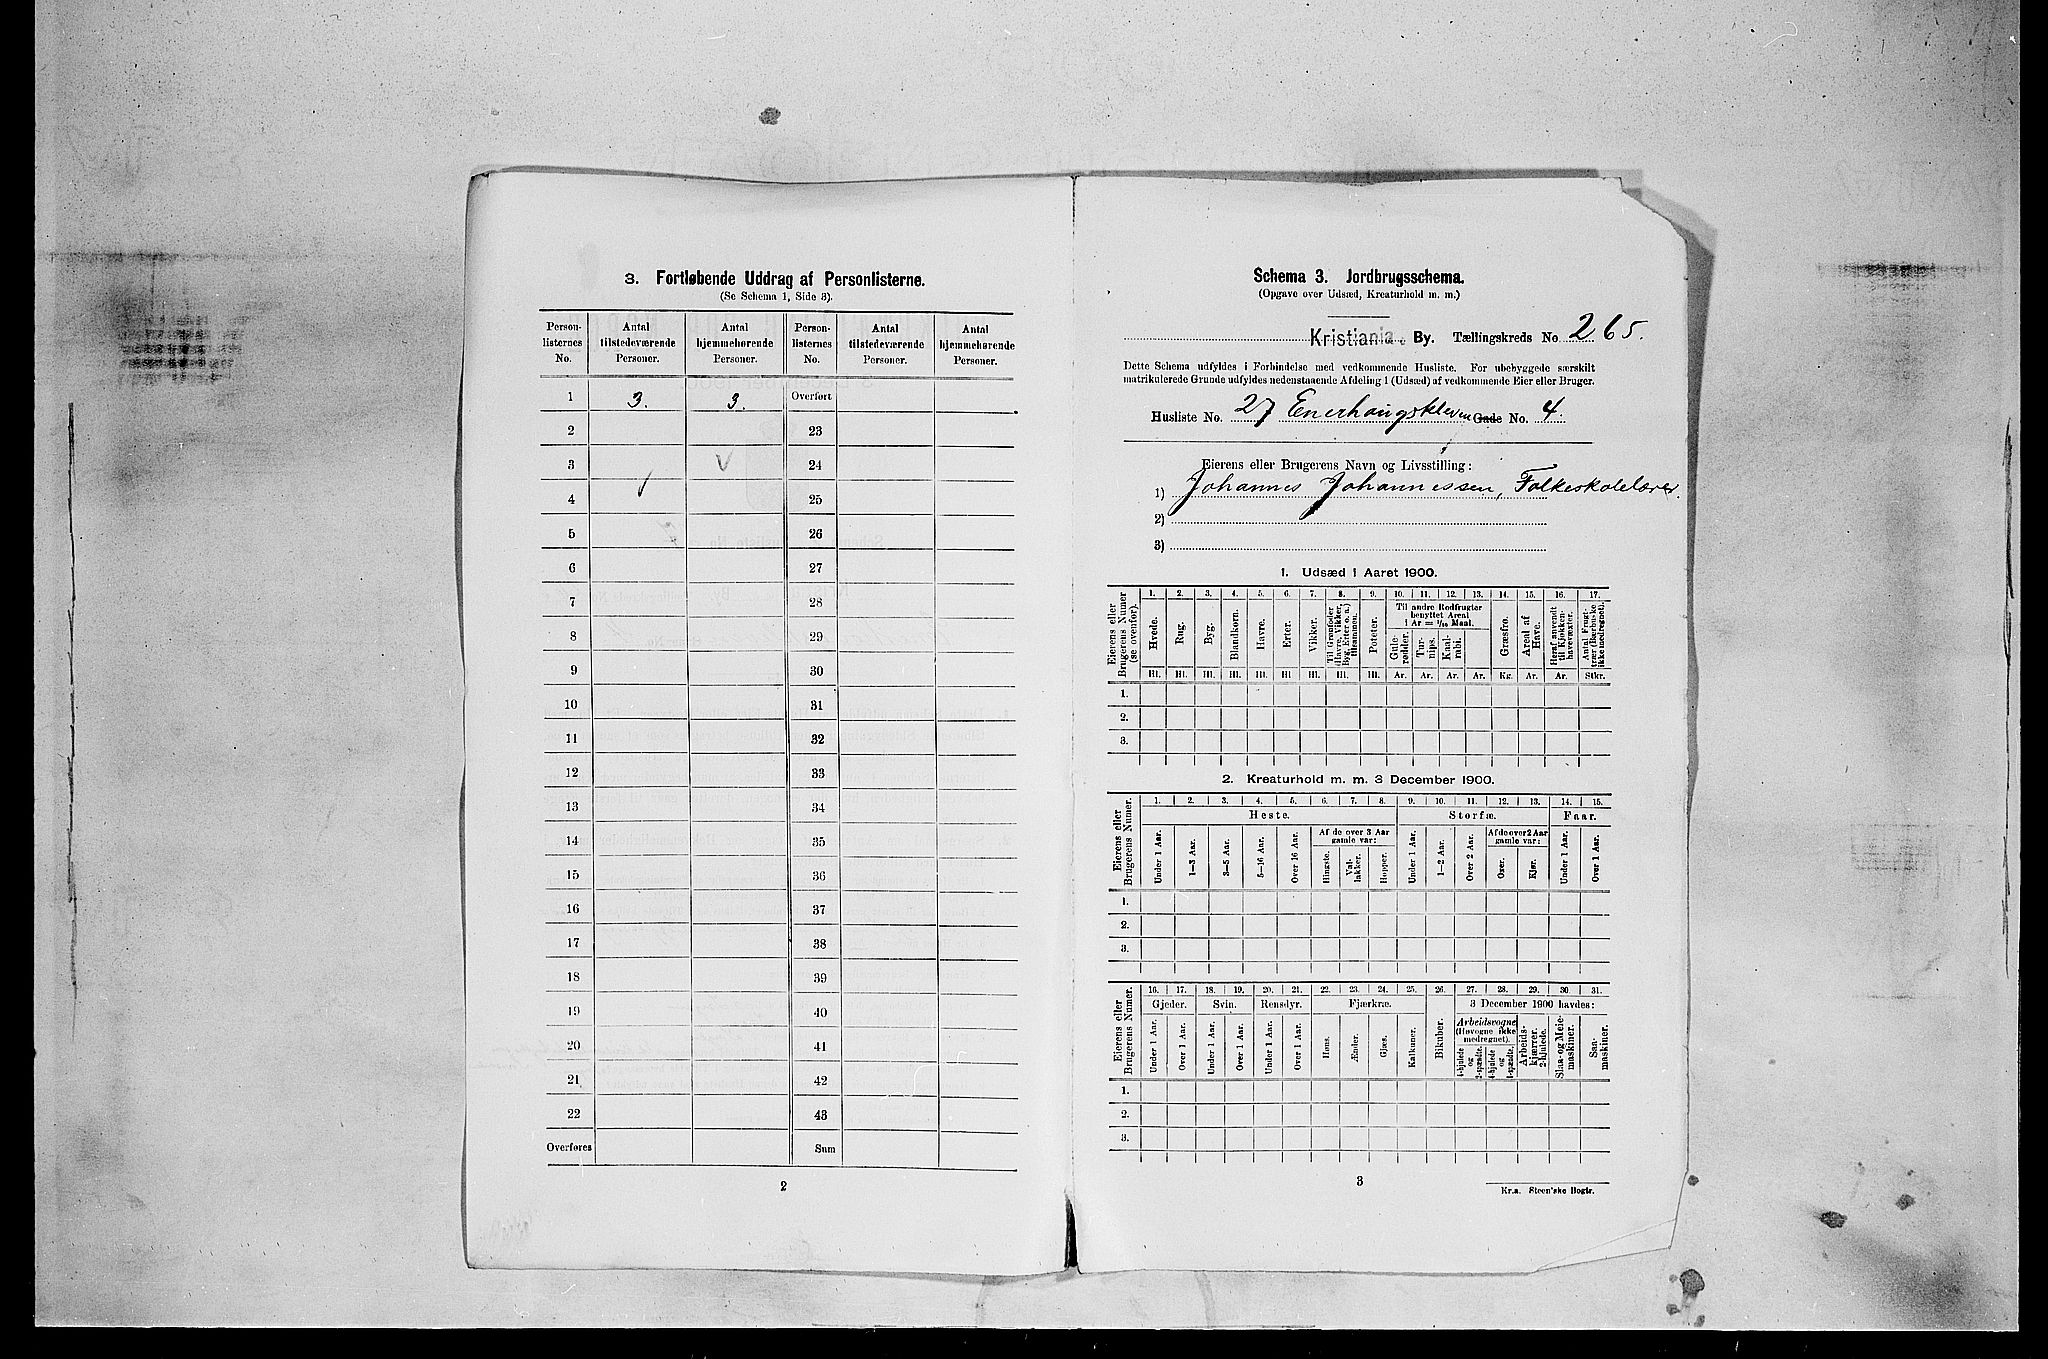 3. Fortløbende Uddrag af Personlisterne.
(Se Schema 1, Side 3).
Person-listernes No. Antal tilstedeværende Personer. Antal hjemmehørende Personer. Person-listernes No. Antal tilstedeværende Personer. Antal hjemmehørende Personer.
1 3. 3. Overført
2 23
3 24
4 25
5 26
6 27
7 28
8 29
9 30
10 31
11 32
12 33
13 34
14 35
15 36
16 37
17 38
18 39
19 40
20 41
21 42
22 43
Overføres Sum
2
Schema 3. Jordbrugsschema.
(Opgave over Udsæd, Kreaturhold m. m.)
Kristiania By. Tællingskreds No 265.
Dette Schema udfyldes i Forbindelse med vedkommende Husliste. For ubebyggede særskilt
matrikulerede Grunde udfyldes nedenstaaende Afdeling 1 (Udsæd) af vedkommende Eier eller Bruger.
Husliste No. 27 Enerhaugskleven Gade No. 4.
Eierens eller Brugerens Navn og Livsstilling:
1) Johannes Johannessen, Folkeskolelærer.
2)
3)
1. Udsæd i Aaret 1900.
Eierens eller Brugerens Numer (se ovenfor).
1. 2. 3. 4. 5. 6. 7. 8. 9. 10. 11. 12. 13. 14. 15. 16. 17.
Til andre Rodfrugter benyttet Areal 1 Ar = 1/10 Maal.
Hvede. Rug. Byg. Blandkorn. Havre. Erter. Vikker. Til Grønfoder (Havre, Vikker, Byg, Erter o. a.) tilsammen. Poteter. Gule-rødder. Tur-nips. Kaal-rabi. Græsfrø. Areal af Have. Heraf anvendt til Kjøkken-havevæxter. Antal Frugt-trær (Bærbuske ikke medregnet).
Hl. Hl. Hl. Hl. Hl. Hl. Hl. Hl. Hl. Ar. Ar. Ar. Ar. Kg. Ar. Ar. Stkr.
1.
2.
3.
2. Kreaturhold m. m. 3 December 1900.
Eierens eller Brugerens Numer.
1. 2. 3. 4. 5. 6. 7. 8. 9. 10. 11. 12. 13. 14. 15.
Heste. Storfæ. Faar.
Af de over 3 Aar gamle var: Af de over 2 Aar gamle var:
Under 1 Aar. 1—3 Aar. 3—5 Aar. 5—16 Aar. Over 16 Aar. Hingste. Val-lakker. Hopper. Under 1 Aar. 1—2 Aar. Over 2 Aar. Oxer. Kjør. Under 1 Aar. Over 1 Aar.
1.
2.
3.
Eierens eller Brugerens Numer.
16. 17. 18. 19. 20. 21. 22. 23. 24. 25. 26. 27. 28. 29. 30. 31.
Gjeder. Svin. Rensdyr. Fjærkræ. 3 December 1900 havdes:
Arbeidsvogne (Høvogne ikke medregnet).
Under 1 Aar. Over 1 Aar. Under 1 Aar. Over 1 Aar. Under 1 Aar. Over 1 Aar. Høns. Ænder. Gjæs. Kalkuner. Bikuber. 4-hjulede og 2-spændte. 4-hjulede og 1-spændte. Arbeids-kjærrer. 2-hjulede. Slaa- og Meie-maskiner. Saa-maskiner.
1.
2.
3.
3
Kr.a. Steen'ske Bogtr.